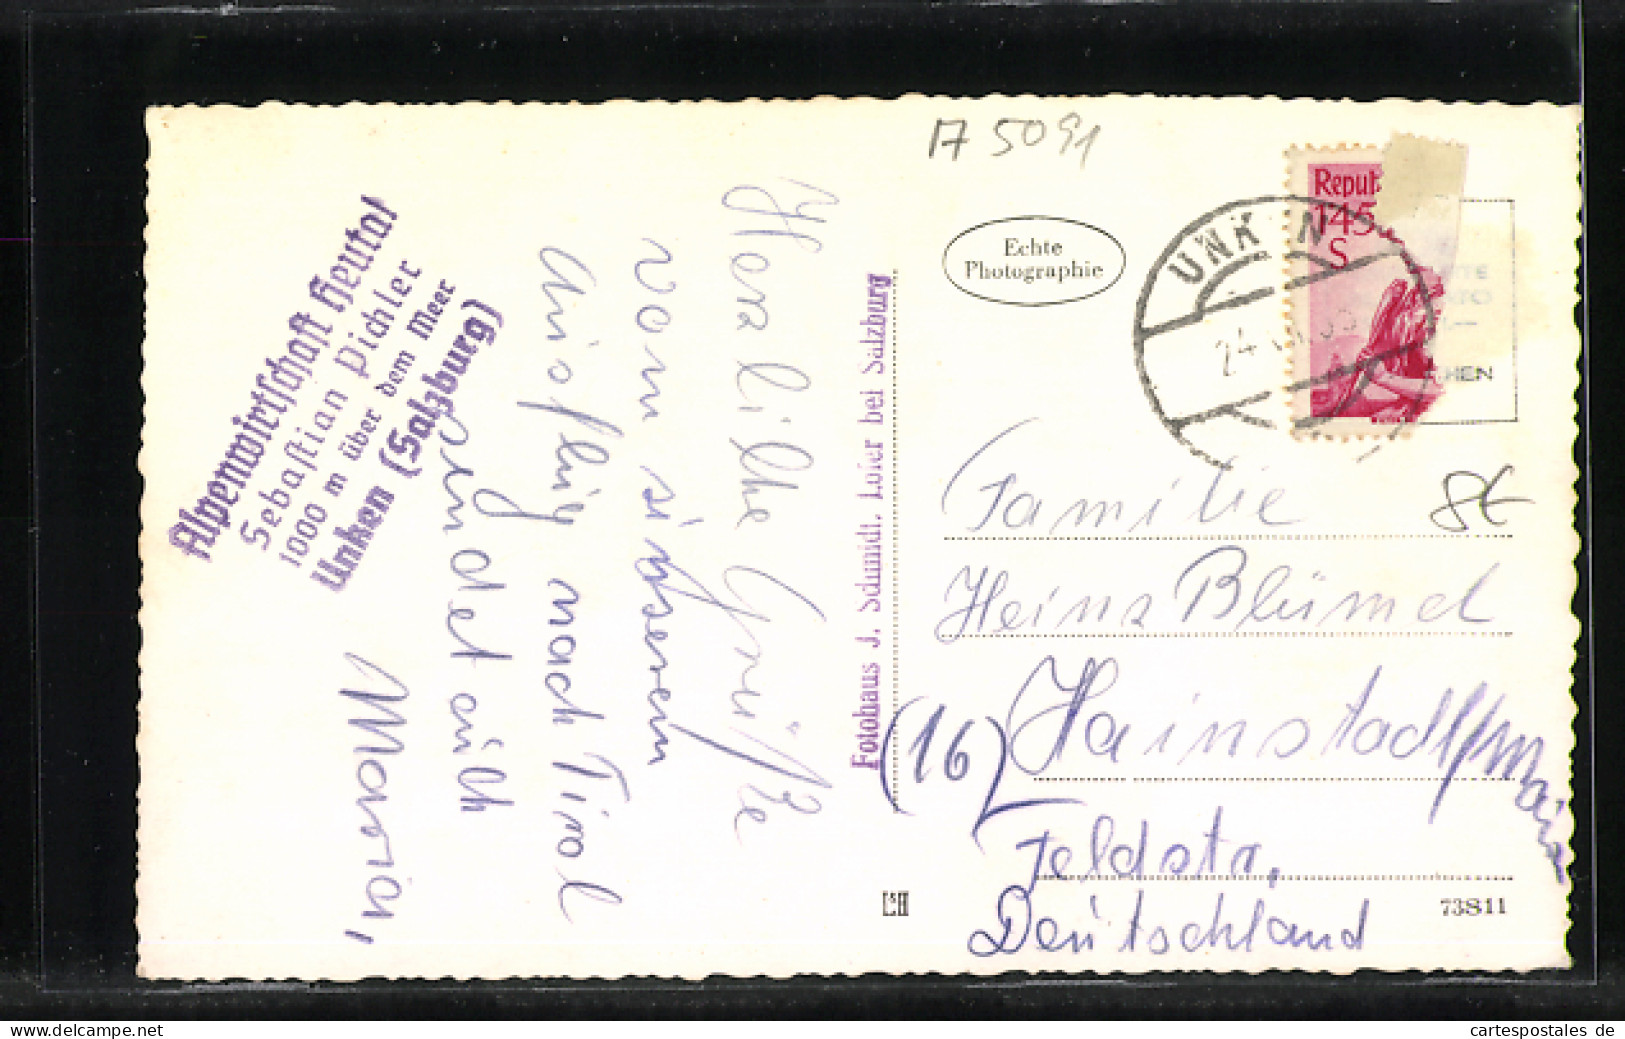 A 5091
Alpenwirtschaft Heutal
Sebastian Pichler
1000 m über dem Meer
Unken (Salzburg)
Herzliche Grüße
vom unserem
Ausflug nach Tirol
sendet euch
Maria,
Fotohaus J. Schmidt, Lofer bei Salzburg
Echte
Photographie
UNK N
24
Repub
1 45
S
HEN
8€
Familie
Heinz Blümel
(16) Hainstadt/Main
Feldstr.
Deutschland
73811
My Online Store
cartespostales de